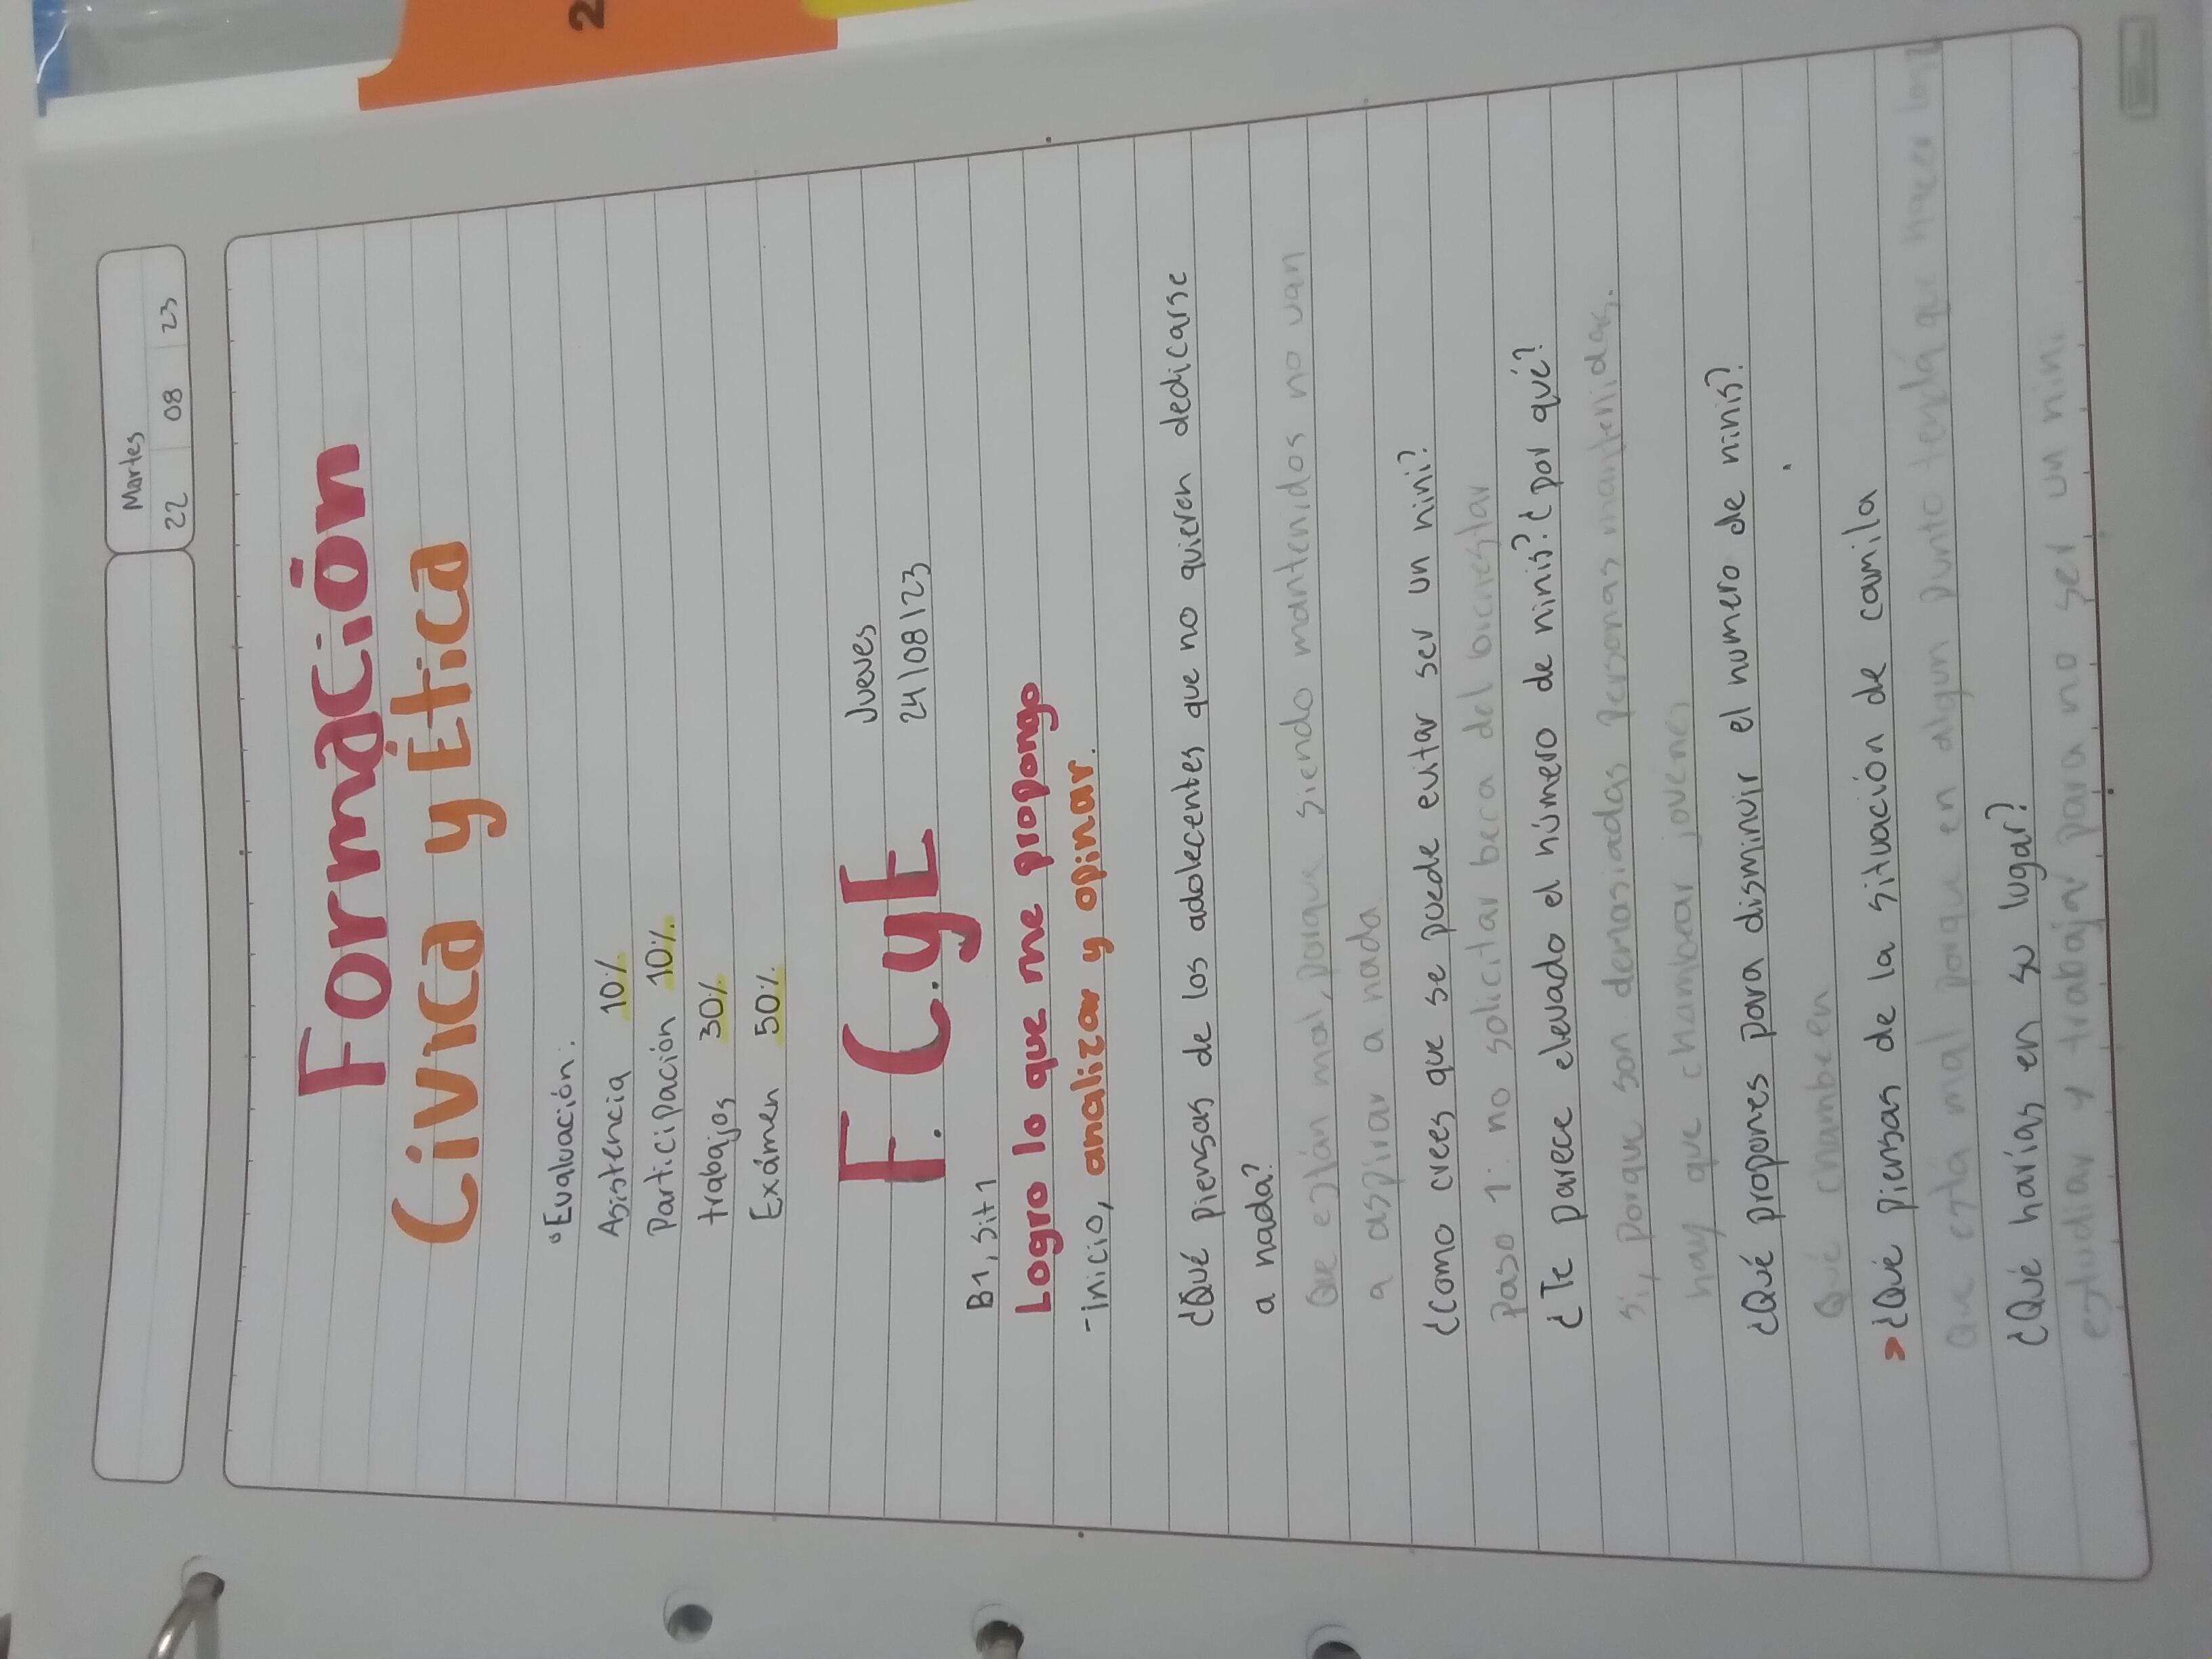 Martes
22 08 23
Formación
Civica y Ética
°Evaluación:
Asistencia 10%
Participación 10%
trabajos 30%
Exámen 50%
F. C. y E
Jueves
24/08/23
B1, Sit 1
Logro lo que me propongo
- inicio, analizar y opinar.
¿Qué piensas de los adolecentes que no quieren dedicarse
a nada?
Que están mal, porque siendo mantenidos no van
a aspirar a nada
¿Como crees que se puede evitar ser un nini?
Paso 1: no solicitar beca del bienestar
¿Te parece elevado el número de ninis? ¿por qué?
Si, porque son demasiadas personas mantenidas.
hay que chambear jovenes
¿Qué propones para disminuir el numero de ninis?
Qué chambeen
> ¿Qué piensas de la situación de camila
Que está mal porque en algun punto tendrá que hacer
¿Qué harías en su lugar?
estudiar y trabajar para no ser un nini
2